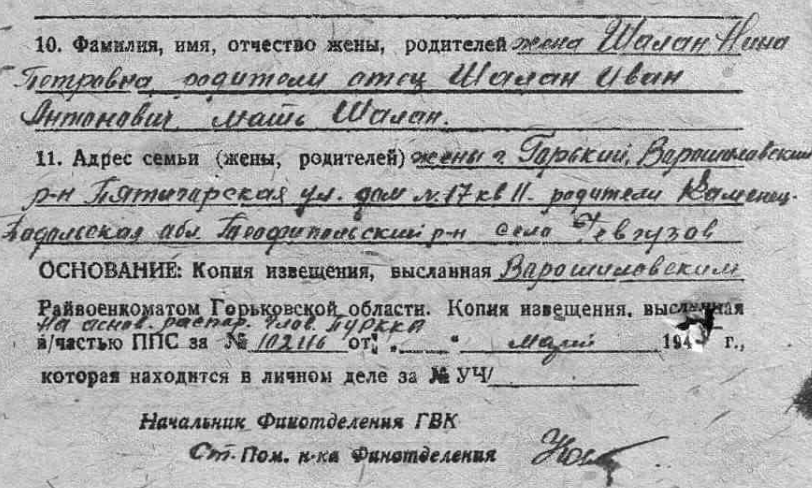 10. Фамилия, имя, отчество жены, родителей жена Шалан Нина
Петровна родители отец Шалан Иван
Антонович, мать Шалан.
11. Адрес семьи (жены, родителей) жены г. Горький, Варошиловский
р-н Пятигарская ул. дом №17 кв 11. родители Каменец-
Падольская обл. Теофипольский р-н село
ОСНОВАНИЕ: Копия извещения, высланная Варошиловским
Райвоенкоматом Горьковской области. Копия извещения, высланная
На основ. распор. Глов. ПУРККА
в/частью ППС за № 102116 от „ " март 194 г.,
которая находится в личном деле за № УЧ/
Начальник Финотделения ГВК
Ст. Пом. н-ка Финотделения